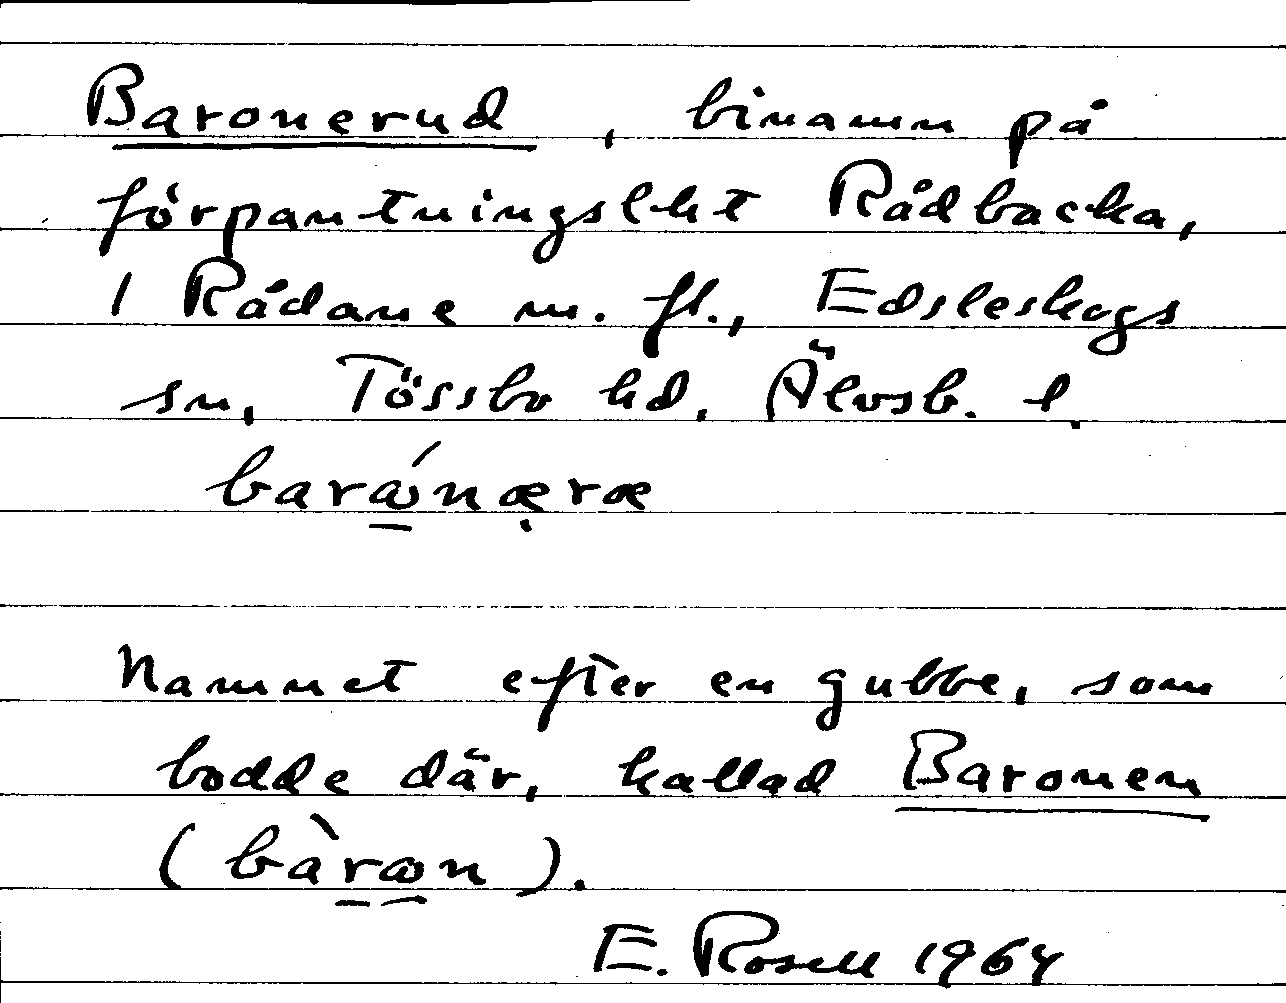 Baronerud, binamn på
förpantningslht Rådbacka,
1 Rådane m. fl., Edsleskogs
sn, Tössbo hd. Älvsb. l.
Namnet efter en gubbe, som
bodde där, kallad Baronen
E. Rosell 1964